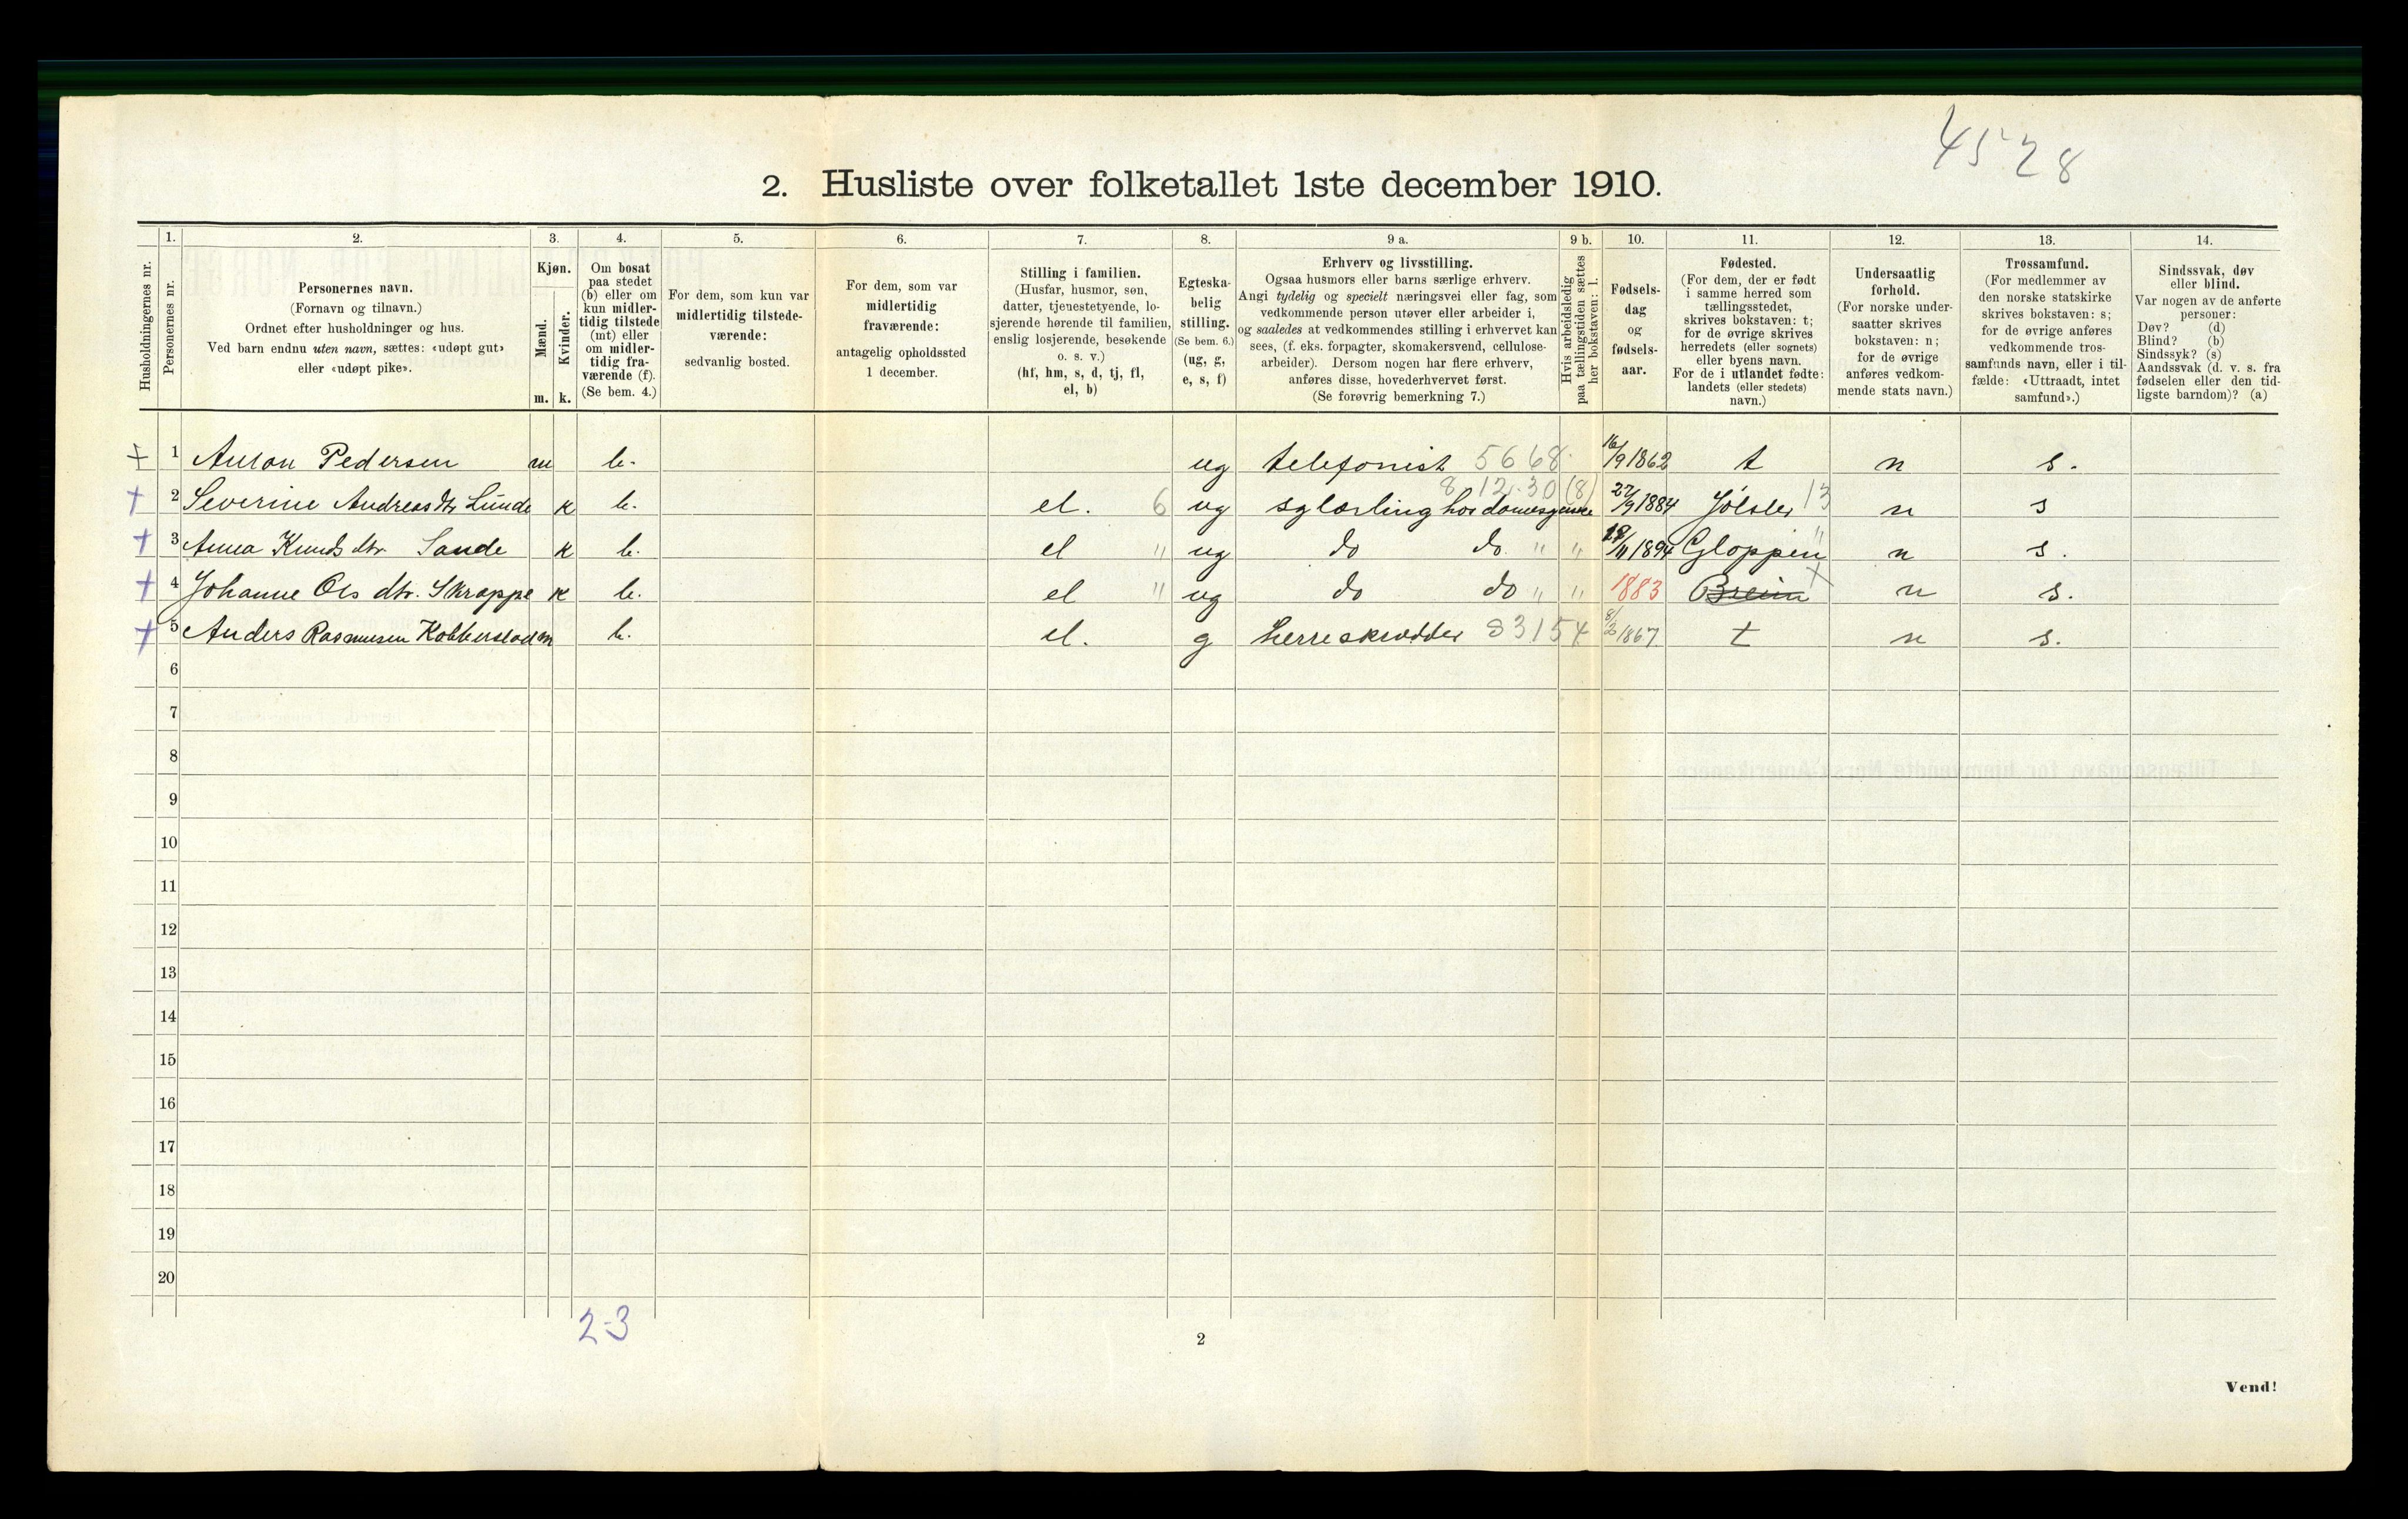 4528
2. Husliste over folketallet 1ste december 1910.
Husholdningernes nr.
1. Personernes nr.
2. Personernes navn.
(Fornavn og tilnavn.)
Ordnet efter husholdninger og hus.
Ved barn endnu uten navn, sættes: «udøpt gut»
eller «udøpt pike».
3. Kjøn.
Mænd. m.
Kvinder. k.
4. Om bosat
paa stedet
(b) eller om
kun midler-
tidig tilstede
(mt) eller
om midler-
tidig fra-
værende (f).
(Se bem. 4.)
5. For dem, som kun var
midlertidig tilstede-
værende:
sedvanlig bosted.
6. For dem, som var
midlertidig
fraværende:
antagelig opholdssted
1 december.
7. Stilling i familien.
(Husfar, husmor, søn,
datter, tjenestetyende, lo-
sjerende hørende til familien,
enslig losjerende, besøkende
o. s. v.)
(hf, hm, s, d, tj, fl,
el, b)
8. Egteska-
belig
stilling.
(Se bem. 6.)
(ug, g,
e, s, f)
9 a. Erhverv og livsstilling.
Ogsaa husmors eller barns særlige erhverv.
Angi tydelig og specielt næringsvei eller fag, som
vedkommende person utøver eller arbeider i,
og saaledes at vedkommendes stilling i erhvervet kan
sees, (f. eks. forpagter, skomakersvend, cellulose-
arbeider). Dersom nogen har flere erhverv,
anføres disse, hovederhvervet først.
(Se forøvrig bemerkning 7.)
9 b. Hvis arbeidsledig
paa tællingstiden sættes
her bokstaven: l.
10. Fødsels-
dag
og
fødsels-
aar.
11. Fødested.
(For dem, der er født
i samme herred som
tællingsstedet,
skrives bokstaven: t;
for de øvrige skrives
herredets (eller sognets)
eller byens navn.
For de i utlandet fødte:
landets (eller stedets)
navn.)
12. Undersaatlig
forhold.
(For norske under-
saatter skrives
bokstaven: n;
for de øvrige
anføres vedkom-
mende stats navn.)
13. Trossamfund.
(For medlemmer av
den norske statskirke
skrives bokstaven: s;
for de øvrige anføres
vedkommende tros-
samfunds navn, eller i til-
fælde: «Uttraadt, intet
samfund».)
14. Sindssvak, døv
eller blind.
Var nogen av de anførte
personer:
Døv? (d)
Blind? (b)
Sindssyk? (s)
Aandssvak (d. v. s. fra
fødselen eller den tid-
ligste barndom)? (a)
1 Anton Pedersen m b. ug telefonist 5668 16/9 1862 t n s.
2 Severine Andreasdtr Lunde k b. el. 6 ug sylærling hos 8.12.30 (8) 27/9 1884 Jølster 13 n s
3 Anna Knuds dtr. Sande k b. el " ug do do " " 1894 Gloppen " n s.
4 Johanne Ols dtr. Skrappe k b. el " ug do do " " 1883 Breim n s.
5 Anders Rasmusen m b. el. g Herreskrædder 83154 8/2 1867 t n s.
6
7
8
9
10
11
12
13
14
15
16
17
18
19
20
2-3
2
Vend!